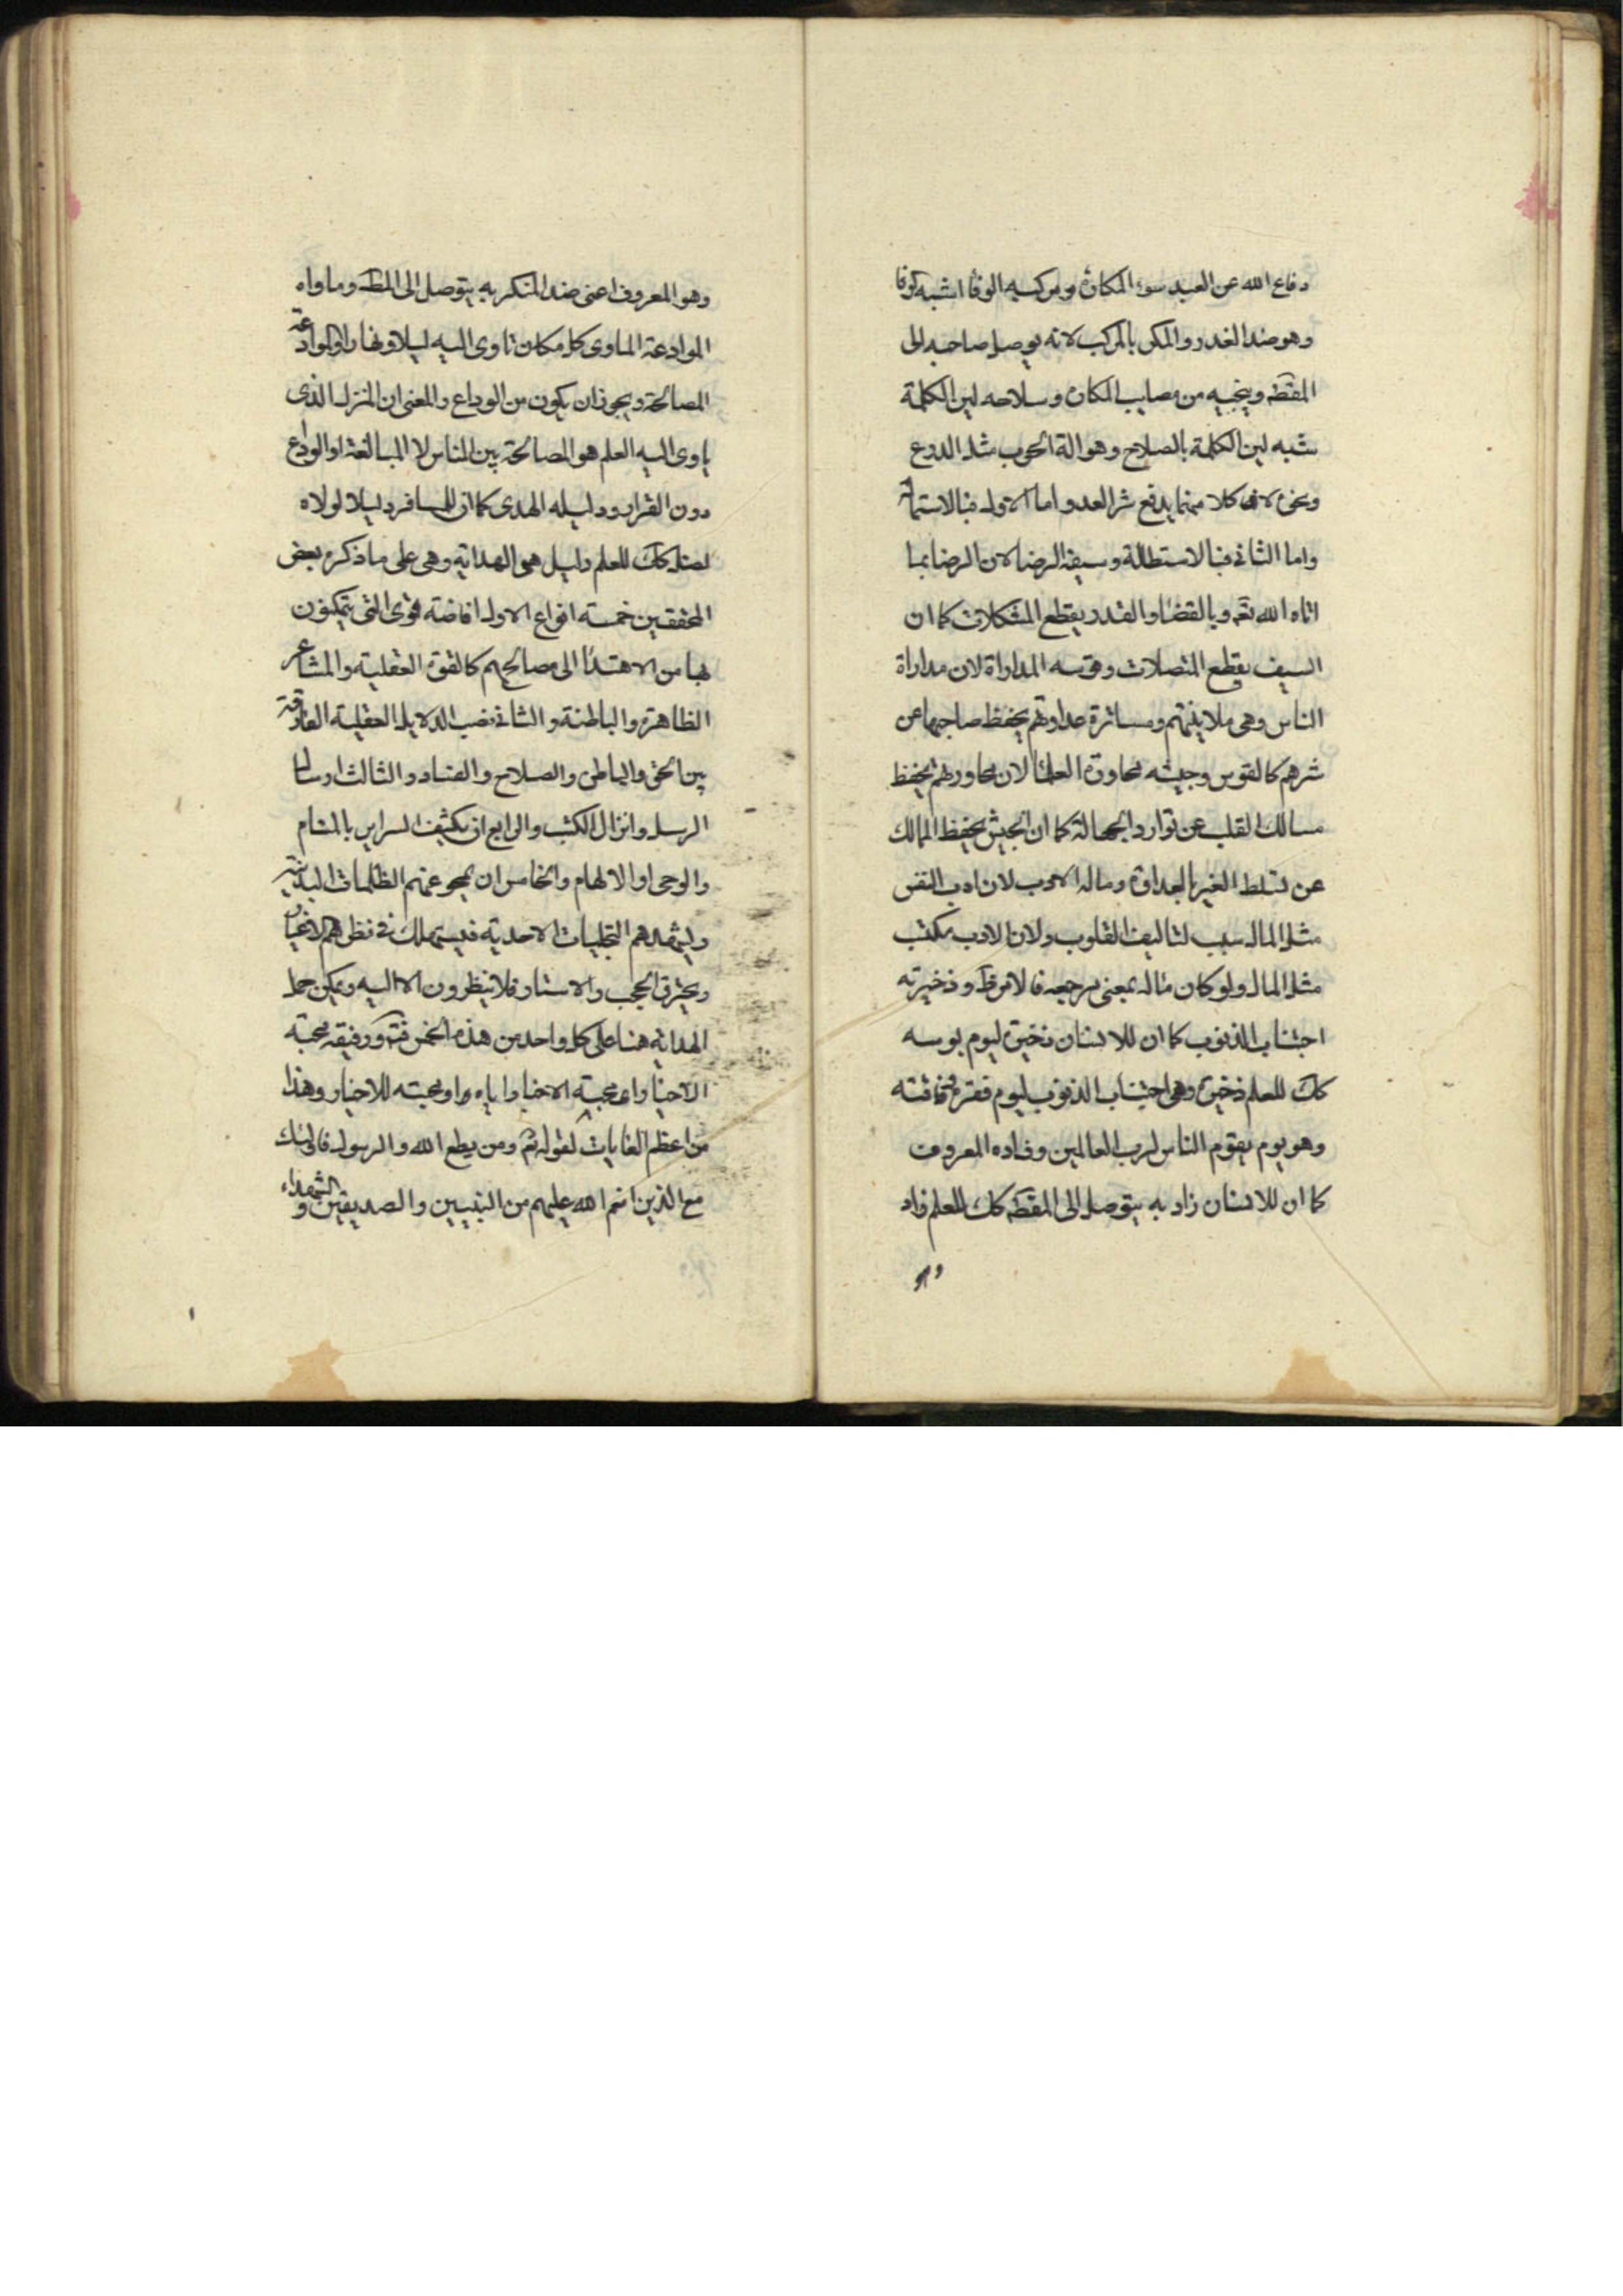 دفاع الله عن العبد سوء المكاره ومركبه الوفا اشبه الوفا
وهو ضد الغدر والمكر بالمركب لانه يوصل صاحبه الى
المقصد وينجيه من مصايب المكاره وسلاحه لين الكلمة
شبه لين الكلمة بالصلاح وهو الة الحرب مثل الدرع
ونحوه لان كلا منهما يدفع شر العدو اما الاول فبالاستمالة
واما الثاني فبالاستطالة وسيفه الرضا لان الرضا بما
اتاه الله تعه وبالقضا والقدر يقطع المشكلات كما ان
السيف يقطع المتصلات وقوسه المداراة لان مداراة
الناس وهي ملاينتهم ومساترة عداوتهم يحفظ صاحبها عن
شرهم كالقوس وجيشه محاورة العلما لان محاورتهم يحفظ
مسالك القلب عن توارد الجهالة كما ان الجيش يحفظ الممالك
عن تسلط الغير بالعداوة وماله الادب لان ادب النفس
مثل المال سبب لتاليف القلوب ولان الادب مكتسب
مثل المال ولو كان ماله بمعنى مرجعه فالامر ظ وذخيرته
اجتناب الذنوب كما ان للانسان ذخيرة ليوم بوسه
كك للعلم ذخيرة وهي اجتناب الذنوب ليوم فقره وفاقته
وهو يوم يقوم الناس لرب العالمين وزاده المعروف
كما ان للانسان زاد به يتوصل الى المقصد كك للعلم زاد
وهو
وهو المعروف اعنى ضد المنكر به يتوصل الى المط وماواه
الموادعة الماوى كل مكان تاوى اليه ليلا ونهارا والموادعة
المصالحة ويجوز ان يكون من الوداع والمعنى ان المنزل الذى
ياوى اليه العلم هو المصالحة بين الناس لا المبالغة او الوداع
دون القرار ودليله الهدى كما ان للمسافر دليلا لولاه
لضل كك للعلم دليل هى الهداية وهى على ما ذكره بعض
المحققين خمسة انواع الاول افاضة قوى التى يتمكنون
بها من الاهتداء الى مصالحهم كالقوة العقلية والمشاعر
الظاهرة والباطنة والثانى نصب الدلايل العقلية الفارقة
بين الحق والباطل والصلاح والفساد والثالث ارسال
الرسل وانزال الكتب والرابع ان يكشف السراير بالمنام
والوحى او الالهام والخامس ان يمحو عنهم الظلمات البدنية
ويشهدهم التجليات الاحدية فيستهلك في نظرهم الاغيار
ويحترق الحجب والاستار فلا ينظرون الا اليه ويمكن حمل
الهداية هنا على كل واحد من هذه الخمس فتد ورفيقه محبة
الاخيار اى محبة الاخيار اياه او محبته للاخيار وهذا
من اعظم الغايات لقوله تع ومن يطع الله والرسول فاولئك
مع الذين انعم الله عليهم من النبيين والصديقين والشهداء